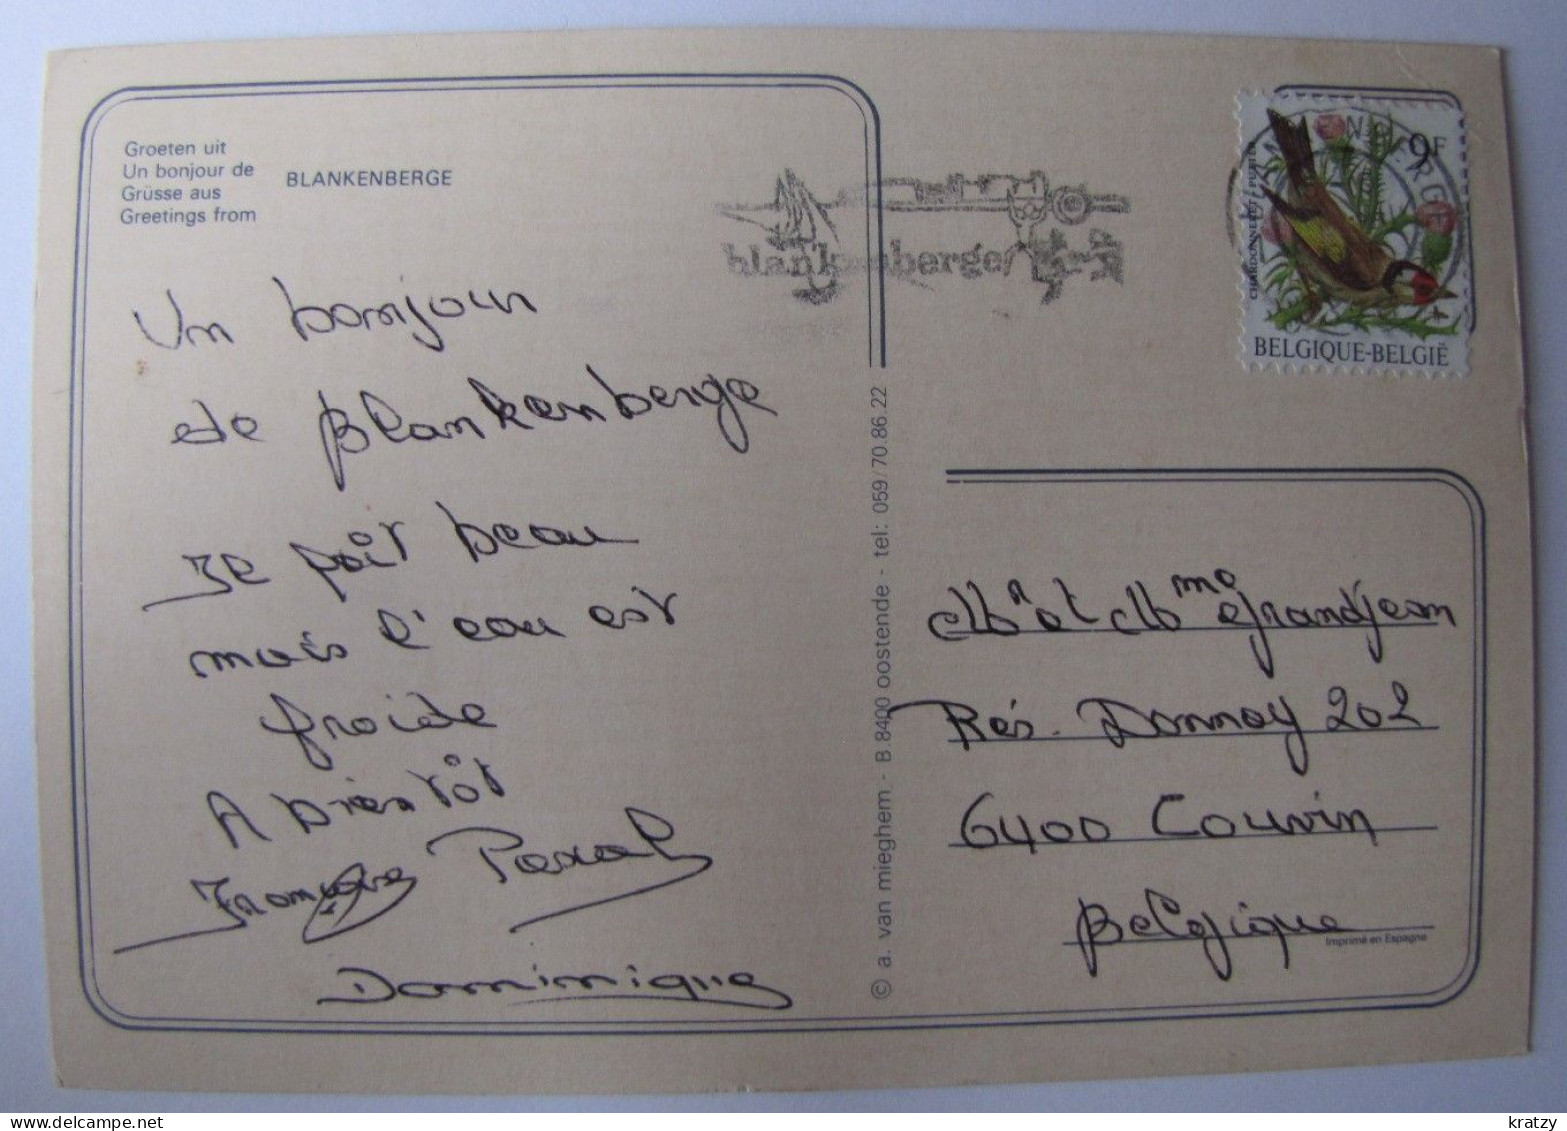 Groeten uit
Un bonjour de
Grüsse aus
Greetings from
BLANKENBERGE
Un bonjour
de Blankenberge
Il fait beau
mais l'eau est
froide
A bientôt
Françoise Pascal
Dominique
© a. van mieghem - B.8400 oostende - tel: 059/70.86.22
blankenberge
9F
CHARDONNERET PUTTER
BELGIQUE-BELGIË
Mr et Mme Grandjean
Rés. Donnay 202
6400 Couvin
Belgique
Imprimé en Espagne
delcampe.net
kratzy